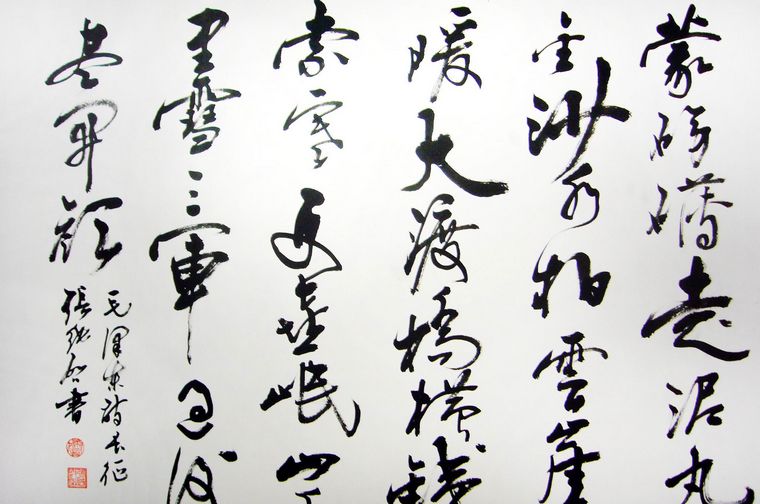 蒙磅礴走泥丸
金沙水拍雲崖
暖大渡橋横鐵
索寒更喜岷山
里雪三軍過後
盡開顔
毛澤東詩長征
張書